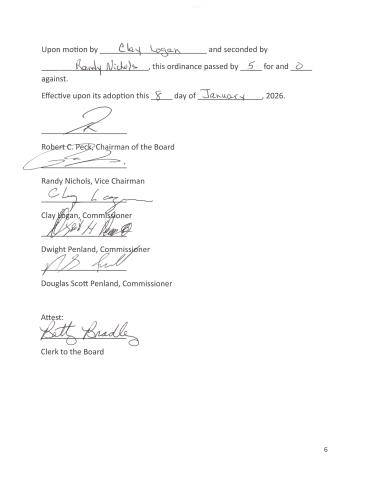 Upon motion by Clay Logan and seconded by
Randy Nichols, this ordinance passed by 5 for and 0
against.
Effective upon its adoption this 8 day of January, 2026.
Robert C. Peck, Chairman of the Board
Randy Nichols, Vice Chairman
Clay Logan
Clay Logan, Commissioner
Dwight Penland, Commissioner
Douglas Scott Penland, Commissioner
Attest:
Betty Bradley
Clerk to the Board
6